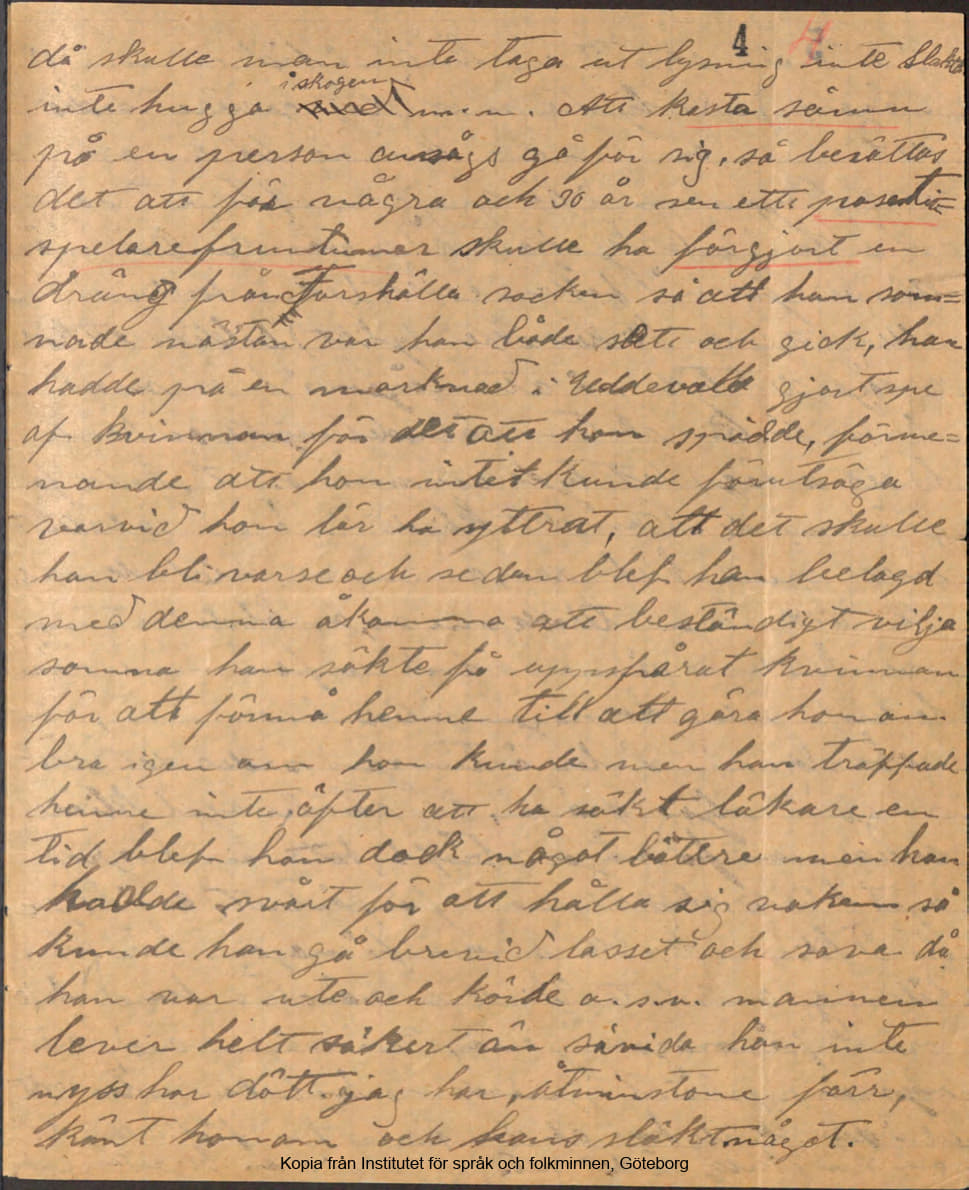 4 4
då skulle man inte taga ut lysning inte slakta
i skogen
inte hugga m.m. Att kasta sömn
på en person ansågs gå för sig, så berättas
det att för några och 30 år sen ett posentiv=
spelarefruntimmer skulle ha förgjort en
dräng från Forshälla socken så att han som=
nade nästan var han både satt och gick, han
hadde på en marknad i Uddevalla gjort spe
af kvinnan för det att hon spådde, förme=
nande att hon intet kunde förutsäga
varvid hon lär ha yttrat, att det skulle
han bli varse och sedan blef han belagd
med denna åkomma att beständigt vilja
somna han sökte få uppspårat kvinnan
för att förmå henne till att göra honom
bra igen om hon kunde men han träffade
henne inte, äfter att ha sökt läkare en
tid blef han dock något bättre men han
hadde svårt för att hålla sig vaken så
kunde han gå brevid lasset och sova då
han var ute och körde o.s.v. mannen
lever helt säkert än såvida han inte
nyss har dött. jag har, åtminstone förr,
känt honom och hans släkt något.
Kopia från Institutet för språk och folkminnen, Göteborg